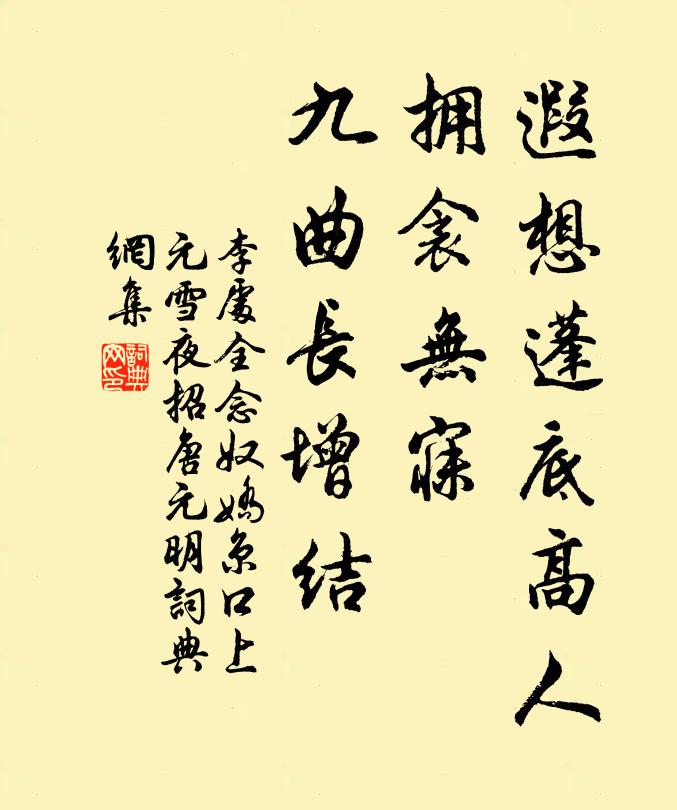 遐想蓬底高人
拥衾無寐
九曲長增结
李處全念奴嬌京口上
元雪夜招唐元明詞典
網集
詞典
网印